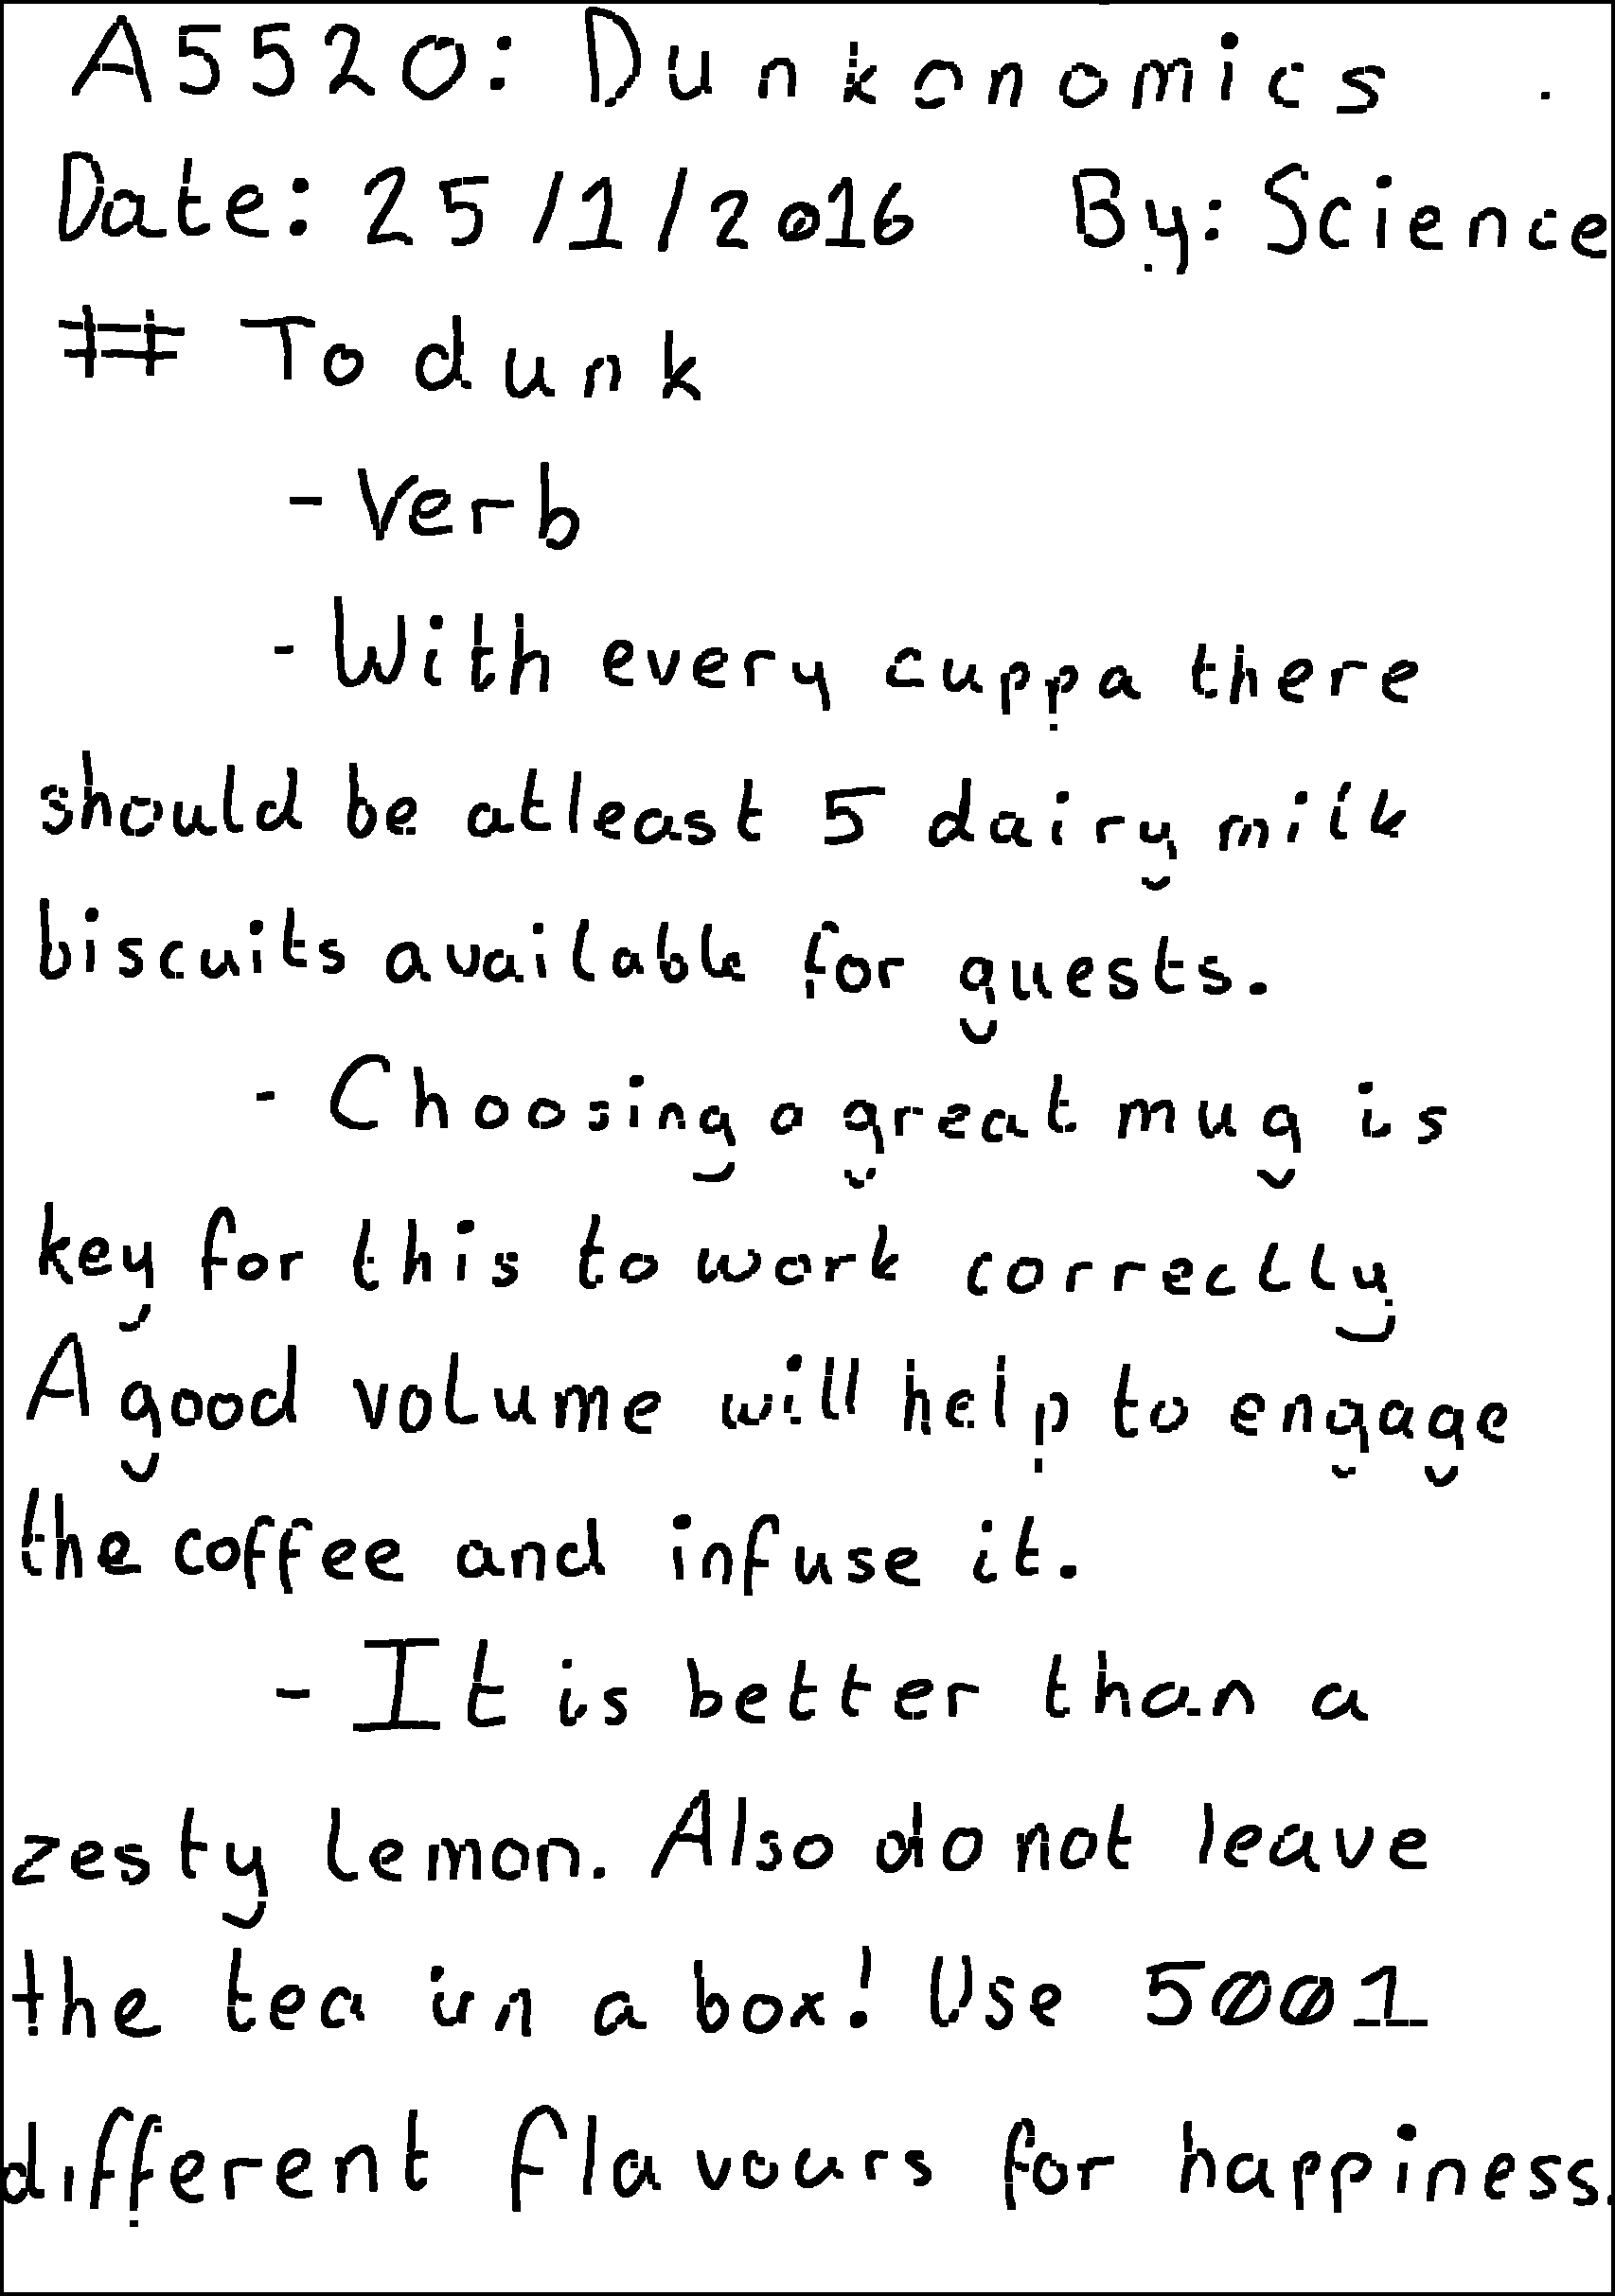 A5520: Dunkonomics
Date: 25/1/2016 By: Science
# To dunk
- Verb
- With every cuppa there
should be atleast 5 dairy milk
biscuits available for guests.
- Choosing a great mug is
key for this to work correctly
A good volume will help to engage
the coffee and infuse it.
- It is better than a
zesty lemon. Also do not leave
the tea in a box! Use 5001
different flavours for happiness.